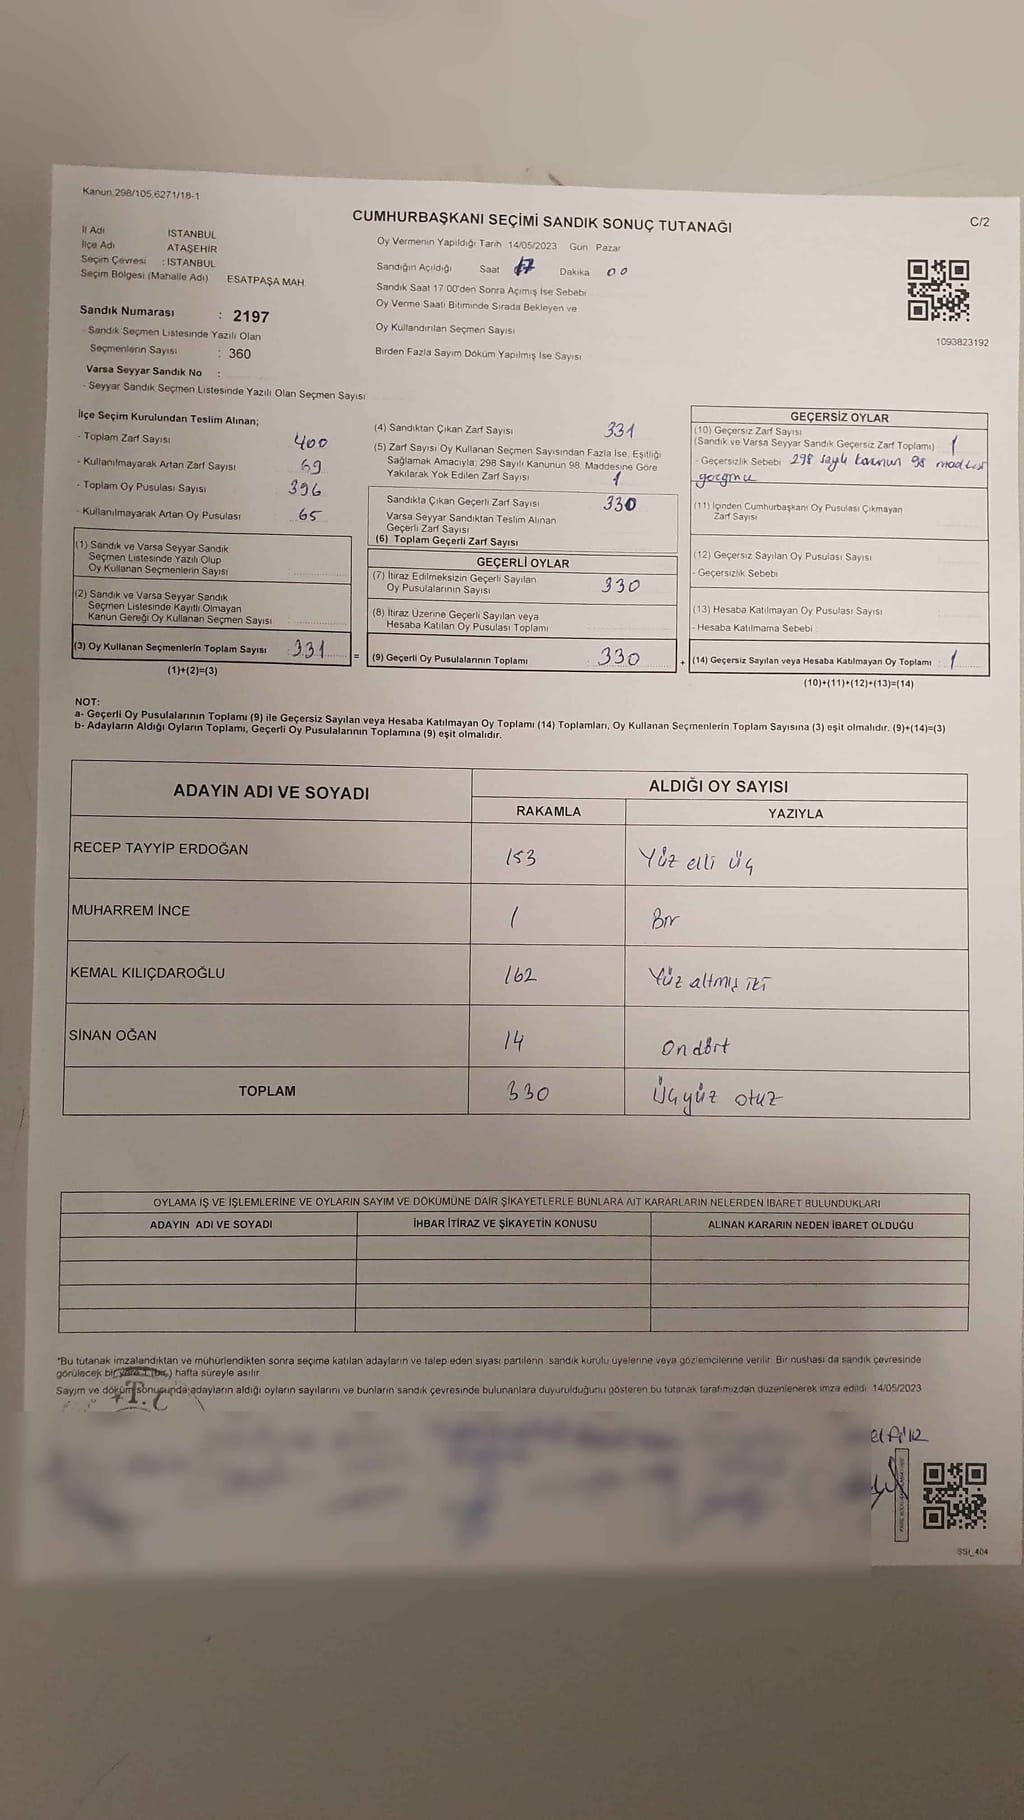 Kanun 298/105,6271/18-1
C/2
CUMHURBAŞKANI SEÇİMİ SANDIK SONUÇ TUTANAĞI
İl Adı İSTANBUL
İlçe Adı ATAŞEHİR
Seçim Çevresi : İSTANBUL
Seçim Bölgesi (Mahalle Adı) ESATPAŞA MAH
Sandık Numarası : 2197
- Sandık Seçmen Listesinde Yazılı Olan
Seçmenlerin Sayısı : 360
Varsa Seyyar Sandık No :
- Seyyar Sandık Seçmen Listesinde Yazılı Olan Seçmen Sayısı
Oy Vermenin Yapıldığı Tarih 14/05/2023 Gün Pazar
Sandığın Açıldığı Saat 17 Dakika 00
Sandık Saat 17:00'den Sonra Açımış İse Sebebi
Oy Verme Saati Bitiminde Sırada Bekleyen ve
Oy Kullandırılan Seçmen Sayısı
Birden Fazla Sayım Döküm Yapılmış İse Sayısı
1093823192
İlçe Seçim Kurulundan Teslim Alınan;
- Toplam Zarf Sayısı 400
- Kullanılmayarak Artan Zarf Sayısı 69
- Toplam Oy Pusulası Sayısı 396
- Kullanılmayarak Artan Oy Pusulası 65
(1) Sandık ve Varsa Seyyar Sandık
Seçmen Listesinde Yazılı Olup
Oy Kullanan Seçmenlerin Sayısı
(2) Sandık ve Varsa Seyyar Sandık
Seçmen Listesinde Kayıtlı Olmayan
Kanun Gereği Oy Kullanan Seçmen Sayısı
(3) Oy Kullanan Seçmenlerin Toplam Sayısı : 331
(1)+(2)=(3)
(4) Sandıktan Çıkan Zarf Sayısı 331
(5) Zarf Sayısı Oy Kullanan Seçmen Sayısından Fazla İse, Eşitliği
Sağlamak Amacıyla; 298 Sayılı Kanunun 98. Maddesine Göre
Yakılarak Yok Edilen Zarf Sayısı 1
Sandıkta Çıkan Geçerli Zarf Sayısı 330
Varsa Seyyar Sandıktan Teslim Alınan
Geçerli Zarf Sayısı
(6) Toplam Geçerli Zarf Sayısı
GEÇERLİ OYLAR
(7) İtiraz Edilmeksizin Geçerli Sayılan
Oy Pusulalarının Sayısı 330
(8) İtiraz Üzerine Geçerli Sayılan veya
Hesaba Katılan Oy Pusulası Toplamı
= (9) Geçerli Oy Pusulalarının Toplamı 330
GEÇERSİZ OYLAR
(10) Geçersiz Zarf Sayısı
(Sandık ve Varsa Seyyar Sandık Geçersiz Zarf Toplamı) 1
- Geçersizlik Sebebi 298 sayılı kanunun 98 maddesi
gereğince
(11) İçinden Cumhurbaşkanı Oy Pusulası Çıkmayan
Zarf Sayısı
(12) Geçersiz Sayılan Oy Pusulası Sayısı
- Geçersizlik Sebebi
(13) Hesaba Katılmayan Oy Pusulası Sayısı
- Hesaba Katılmama Sebebi
+ (14) Geçersiz Sayılan veya Hesaba Katılmayan Oy Toplamı 1
(10)+(11)+(12)+(13)=(14)
NOT:
a- Geçerli Oy Pusulalarının Toplamı (9) ile Geçersiz Sayılan veya Hesaba Katılmayan Oy Toplamı (14) Toplamları, Oy Kullanan Seçmenlerin Toplam Sayısına (3) eşit olmalıdır. (9)+(14)=(3)
b- Adayların Aldığı Oyların Toplamı, Geçerli Oy Pusulalarının Toplamına (9) eşit olmalıdır.
ADAYIN ADI VE SOYADI ALDIĞI OY SAYISI
RAKAMLA YAZIYLA
RECEP TAYYİP ERDOĞAN 153 Yüz elli üç
MUHARREM İNCE 1 Bir
KEMAL KILIÇDAROĞLU 162 Yüz altmış iki
SİNAN OĞAN 14 On dört
TOPLAM 330 Üçyüz otuz
OYLAMA İŞ VE İŞLEMLERİNE VE OYLARIN SAYIM VE DÖKÜMÜNE DAİR ŞİKAYETLERLE BUNLARA AİT KARARLARIN NELERDEN İBARET BULUNDUKLARI
ADAYIN ADI VE SOYADI İHBAR İTİRAZ VE ŞİKAYETİN KONUSU ALINAN KARARIN NEDEN İBARET OLDUĞU
*Bu tutanak imzalandıktan ve mühürlendikten sonra seçime katılan adayların ve talep eden siyasi partilerin sandık kurulu üyelerine veya gözlemcilerine verilir. Bir nüshası da sandık çevresinde
görülecek bir yere 1 (bir) hafta süreyle asılır.
Sayım ve döküm sonucunda adayların aldığı oyların sayılarını ve bunların sandık çevresinde bulunanlara duyurulduğunu gösteren bu tutanak tarafımızdan düzenlenerek imza edildi. 14/05/2023
T.C
SSI_404